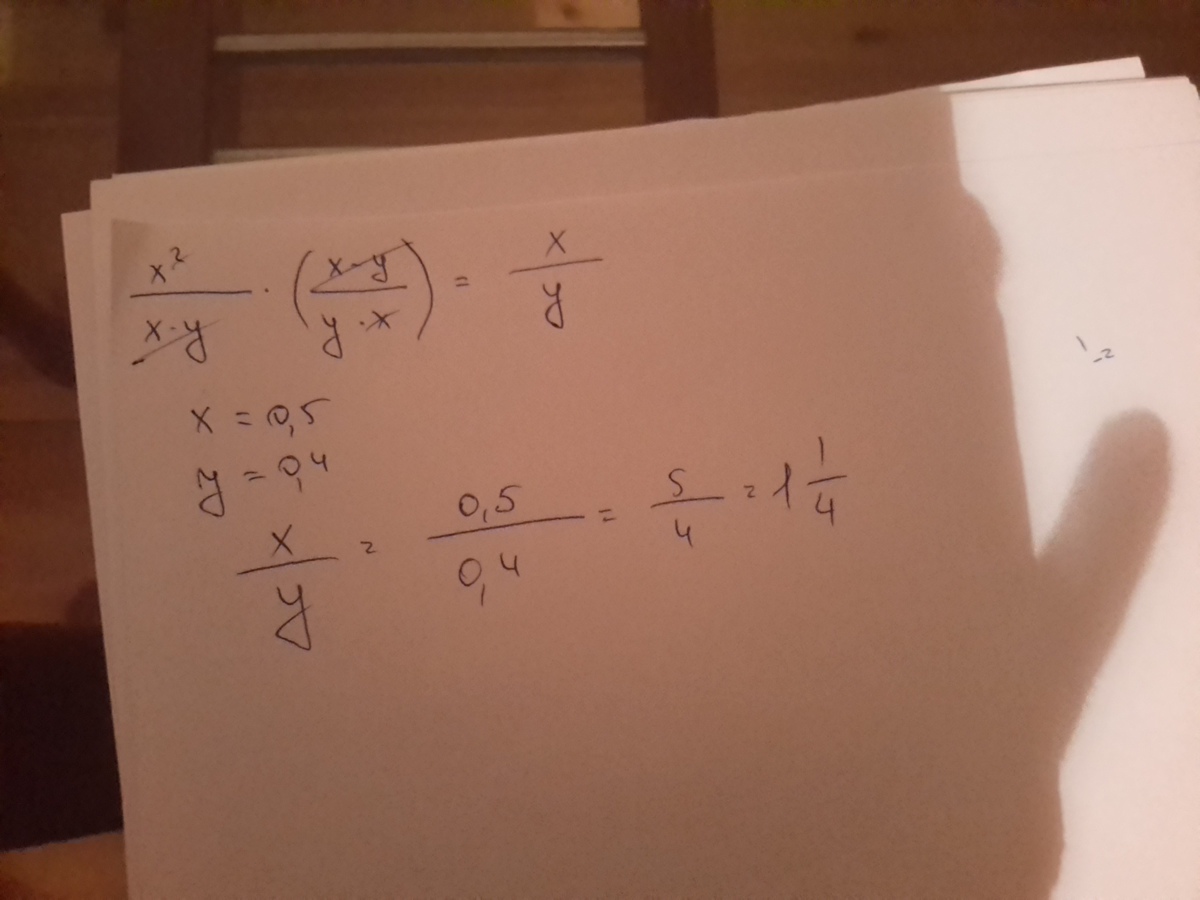 x² / x·y · (x-y / y·x) = x / y
x = 0,5
y = 0,4
x / y = 0,5 / 0,4 = 5 / 4 = 1 1/4